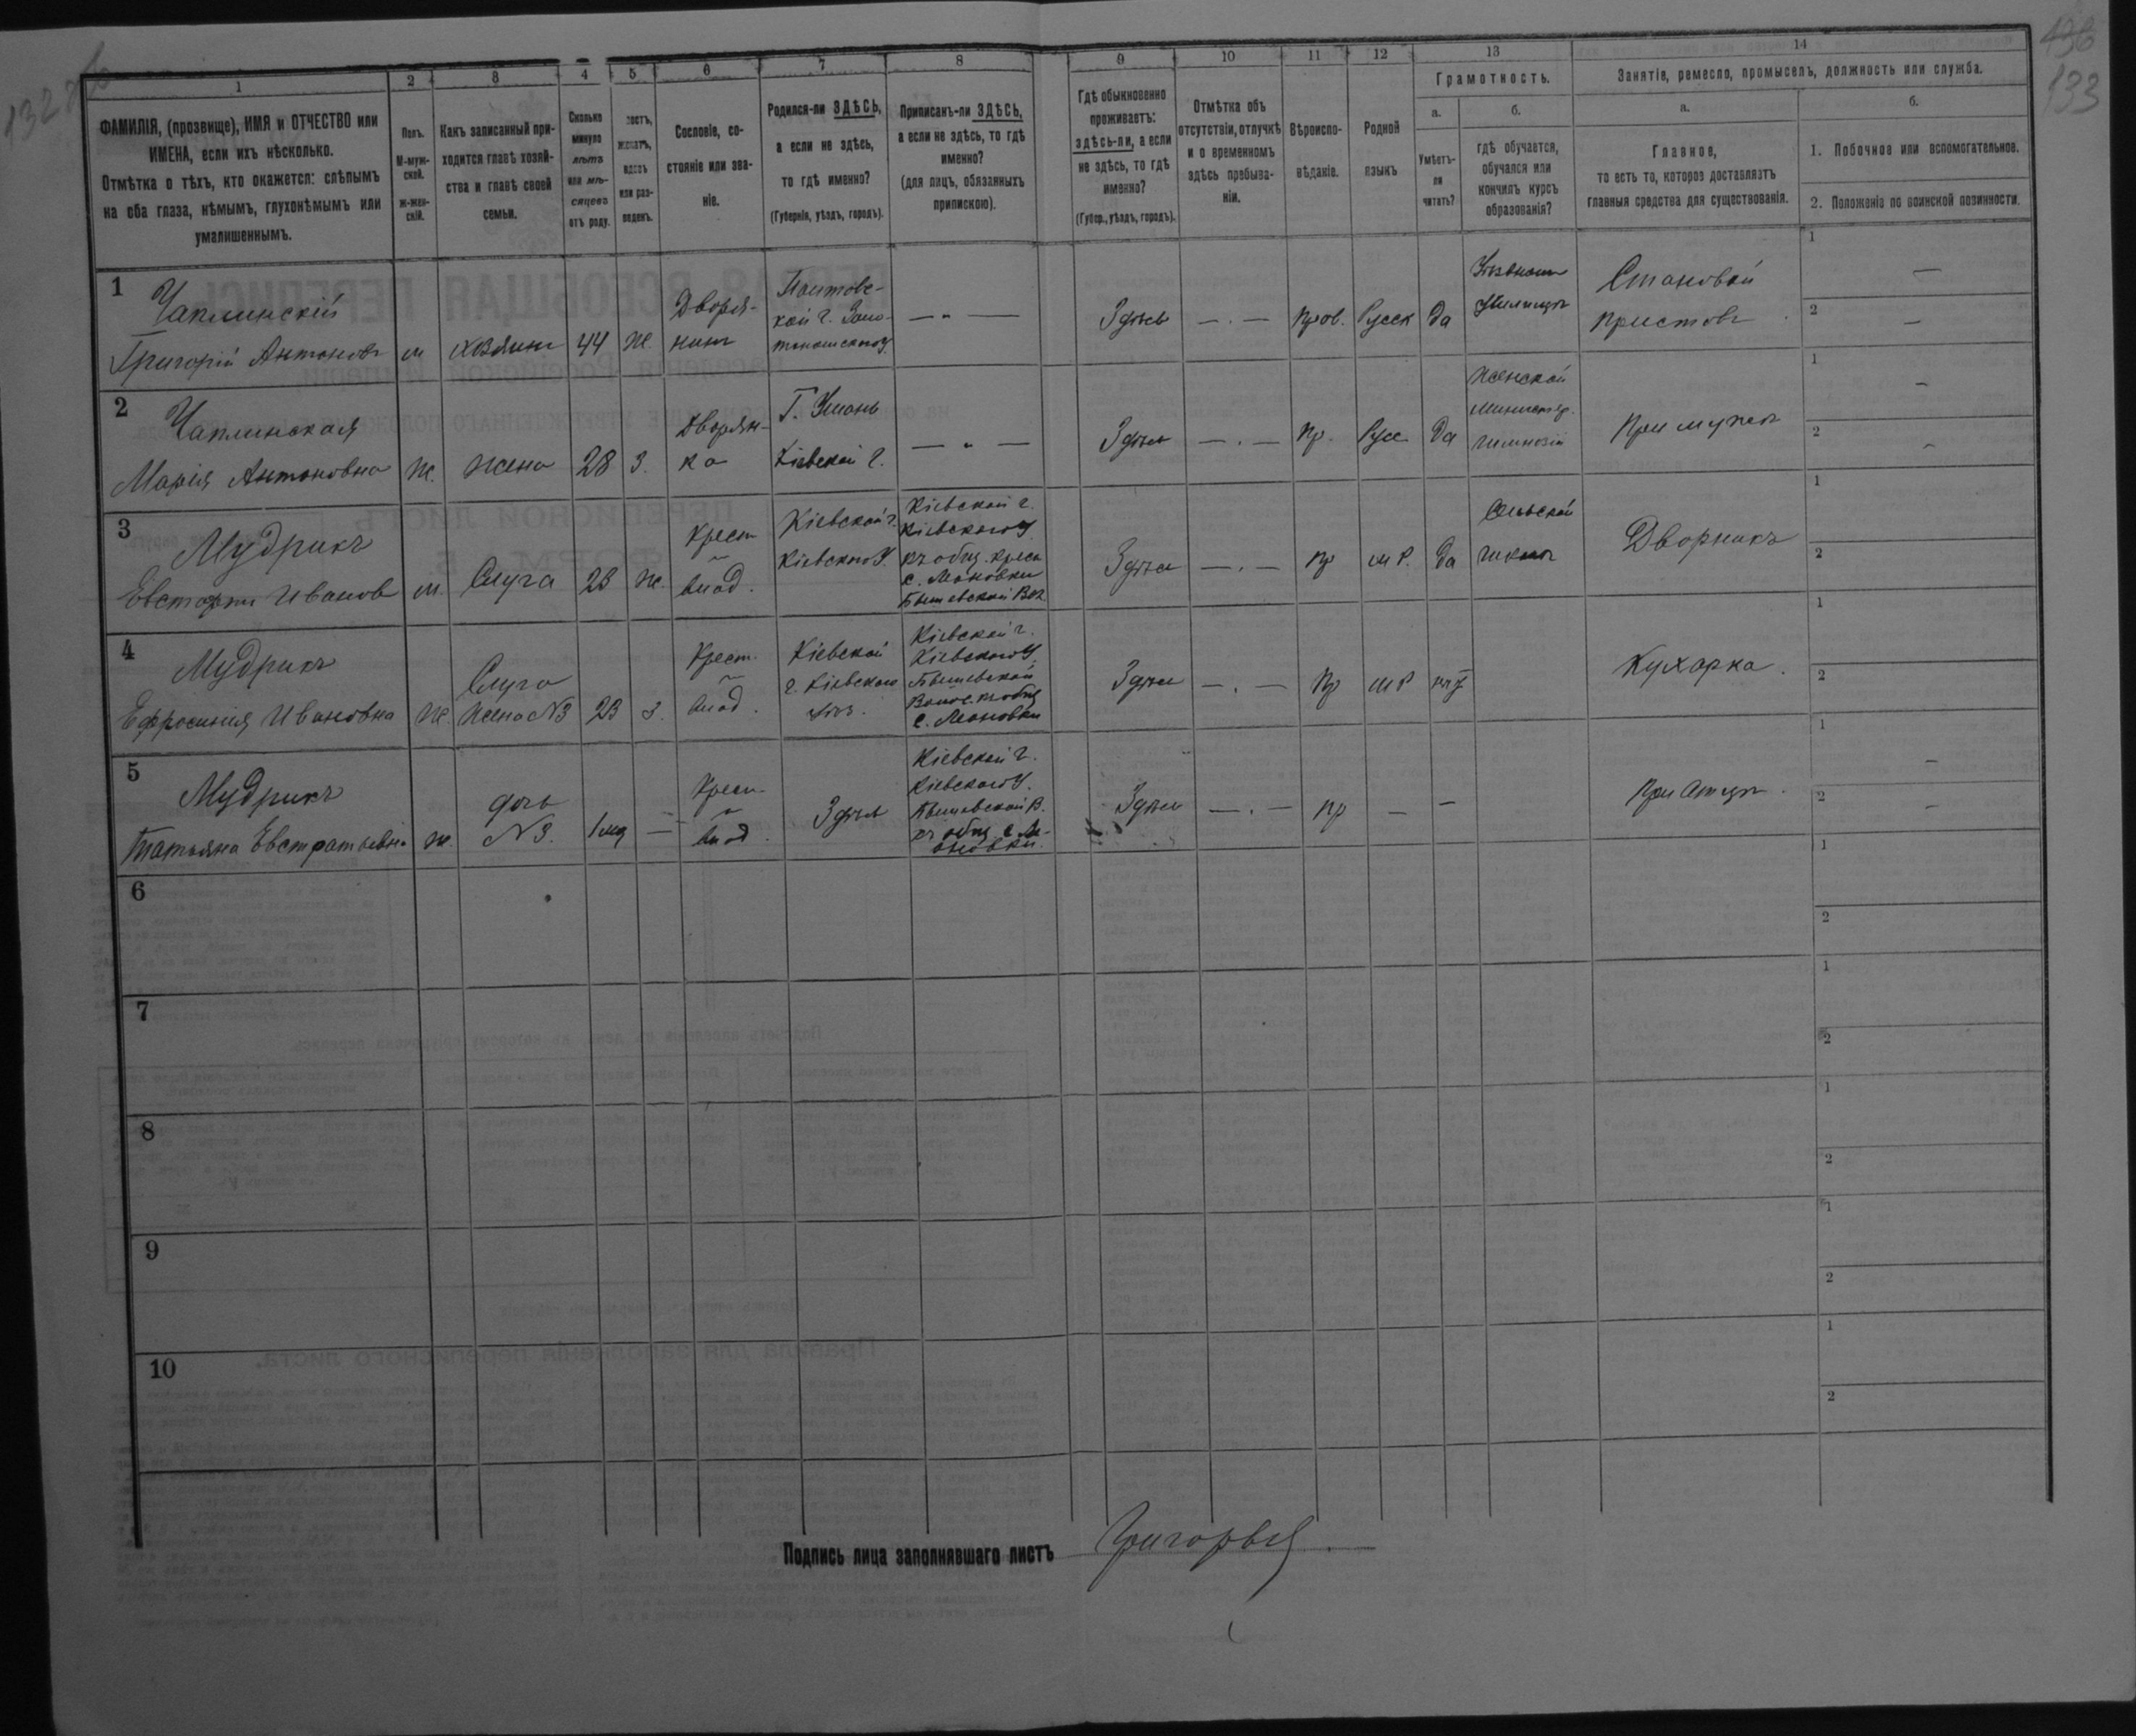 132 об
136
133
1
2
3
4
5
6
7
8
9
10
11
12
13
14
ФАМИЛІЯ, (прозвище), ИМЯ и ОТЧЕСТВО или
ИМЕНА, если ихъ нѣсколько.
Отмѣтка о тѣхъ, кто окажется: слѣпымъ
на оба глаза, нѣмымъ, глухонѣмымъ или
умалишеннымъ.
Полъ.
М-муж-
ской.
Ж-жен-
скій.
Какъ записанный при-
ходится главѣ хозяй-
ства и главѣ своей
семьи.
Сколько
минуло
лѣтъ
или мѣ-
сяцевъ
отъ роду.
костъ,
женатъ,
вдовъ
или раз-
веденъ.
Сословіе, со-
стояніе или зва-
ніе.
Родился-ли ЗДѢСЬ,
а если не здѣсь,
то гдѣ именно?
(Губернія, уѣздъ, городъ).
Приписанъ-ли ЗДѢСЬ,
а если не здѣсь, то гдѣ
именно?
(для лицъ, обязанныхъ
припискою).
Гдѣ обыкновенно
проживаетъ:
здѣсь-ли, а если
не здѣсь, то гдѣ
именно?
(Губер., уѣздъ, городъ).
Отмѣтка объ
отсутствіи, отлучкѣ
и о временномъ
здѣсь пребыва-
ніи.
Вѣроиспо-
вѣданіе.
Родной
языкъ
Грамотность.
а.
Умѣетъ-
ли
читать?
б.
гдѣ обучается,
обучался или
кончилъ курсъ
образованія?
Занятіе, ремесло, промыселъ, должность или служба.
а.
Главное,
то есть то, которое доставляетъ
главныя средства для существованія.
б.
1. Побочное или вспомогательное.
2. Положеніе по воинской повинности.
1
Чаплинскій
Григорій Антоновъ
м
хозяинъ
44
ж.
Дворя-
нинъ
Полтовс-
кой г. Золо-
тоношскогоУ
— " —
Здѣсь
— . —
Прав.
Русск
да
Уѣздномъ
Училищѣ
Становой
приставъ
1
—
2
—
2
Чаплинская
Марія Антоновна
ж.
жена
28
З.
Дворян-
ка
Г. Умань
Кіевской г.
— " —
Здѣсь
— . —
Пр.
Русс
да
женской
гимназіи
При мужѣ
1
—
2
—
3
Мудрикъ
Ивановъ
м.
Слуга
28
ж.
Крест
влад.
Кіевской г.
Кіевского У.
Кіевской г.
Кіевского У
къ общ. Крест
Бышевской Вол.
Здѣсь
— . —
Пр
м Р.
да
Сельской
школѣ
Дворникъ
1
2
4
Мудрикъ
Ефросинія Ивановна
ж.
Слуга
жена №3
23
З.
Крест
влад.
Кіевской
г. Кіевского
Уѣз.
Кіевской г.
Кіевского У.
Бышевской
Здѣсь
— . —
Пр
м Р
нѣт
Кухарка.
1
2
5
Мудрикъ
Татьяна Евстратьевна
ж.
дочь
№3.
1 мѣ
—
Крест
влад.
Здѣсь
Кіевской г.
Кіевского У.
Бышевской В.
Здѣсь
— . —
пр
—
—
При Отцѣ.
1
—
2
—
6
1
2
7
1
2
8
1
2
9
1
2
10
1
2
Подпись лица заполнявшаго листъ